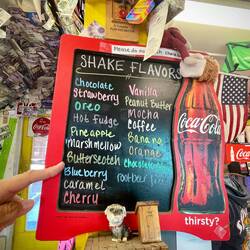 Please do not
SHAKE FLAVORS
Chocolate
Strawberry
Oreo
Hot fudge
Pineapple
marshmallow
Butterscotch
Blueberry
caramel
CHERRY
Vanilla
Peanut Butter
Mocha
coffee
Banana
Orange
chocolate
root beer
Coca-Cola
thirsty?